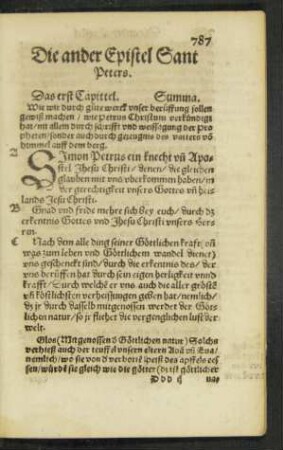 787
Die ander Epistel Sant
Peters.
Das erst Capittel. Summa.
Wie wir durch gůte werck vnser berůffung sollen
gewiß machen / wie petrus Christum verkündigt
hat / nit allein durch schrifft vnd weissagung der pro
pheten / sonder auch durch gezeugnis des vatters vō
hommel auff dem berg.
Simon Petrus ein knecht vñ Apo-
stel Jhesu Christi / denen / die gleichen
glauben mit vns vberkommen haben / in
der gerechtigkeit vnsers Gottes vñ heis
lands Jesu Christi.
B Gnad vnd fride mehre sich bey euch / durch dz
erkentnis Gottes vnd Jhesu Christi vnsers Her-
ren.
C Nach dem alle ding seiner Göttlichen krafft / vñ
was zum leben vnd Göttlichem wandel dienet)
vns geschenckt sind / durch die erkentnis des / der
vns berůffen hat durch sein eigen herligkeit vnnd
krafft / durch welche er vns auch die aller gröst
vñ köstlichsten verheissungen geben hat / nemlich /
dz jr durch dasselb mitgenossen werdet der Gött
lichen natur / so jr fliehet die vergenglichen lust der
welt.
Glos (Mitgenossen d Göttlichen natur) Solchs
verhieß auch der teuffel vnsern eltern Adā vñ Eua /
nemlich / wo sie von d verbottē speiß des apffels es-
sen / würdē sie gleich wie die götter (dz ist göttlicher
Ddd ij na=